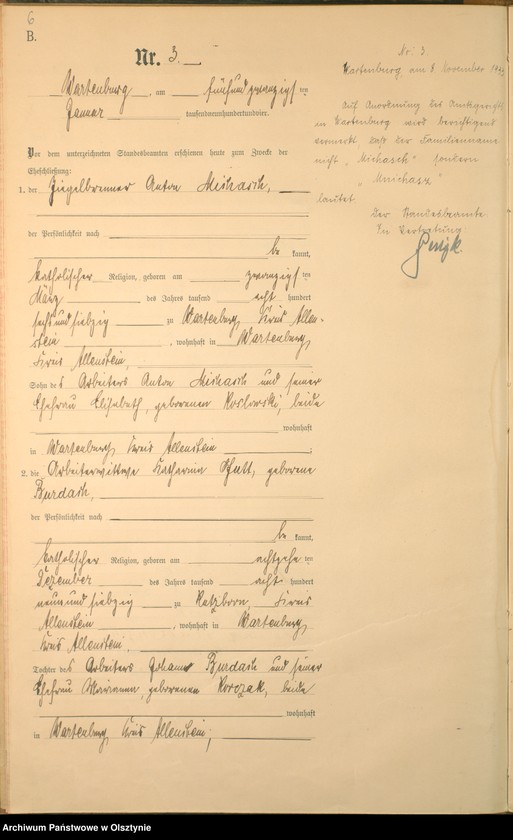 6
B.
Nr. 3.
Wartenburg, am fünfundzwanzigsten
Januar tausendneunhundertundvier.
Vor dem unterzeichneten Standesbeamten erschienen heute zum Zwecke der
Eheschließung:
1. der Ziegelbrenner Anton Michasch,
der Persönlichkeit nach
be kannt,
katholischer Religion, geboren am zwanzigsten
März des Jahres tausend acht hundert
sechsundsiebzig zu Wartenburg, Kreis Allen-
stein, wohnhaft in Wartenburg,
Kreis Allenstein,
Sohn des Arbeiters Anton Michasch und seiner
Ehefrau Elisabeth, geborenen Koslowski, beide
wohnhaft
in Wartenburg, Kreis Allenstein;
2. die Arbeiterwittwe Katharina geborene
Burdach,
der Persönlichkeit nach
be kannt,
katholischer Religion, geboren am achtzehnten
Dezember des Jahres tausend acht hundert
neunundsiebzig zu Kreis
Allenstein, wohnhaft in Wartenburg,
Kreis Allenstein,
Tochter des Arbeiters Johann Burdach und seiner
Ehefrau Marianna, geborenen Korczak, beide
wohnhaft
in Wartenburg, Kreis Allenstein;
Nr. 3
Wartenburg am 8 November
Auf Anordnung des Amtsgerichts
in Wartenburg wird berichtigend
vermerkt, daß der Familienname
nicht „Michasch“ sondern
„Mnichasz“
lautet
Der Standesbeamte
In Vertretung:
Archiwum Państwowe w Olsztynie